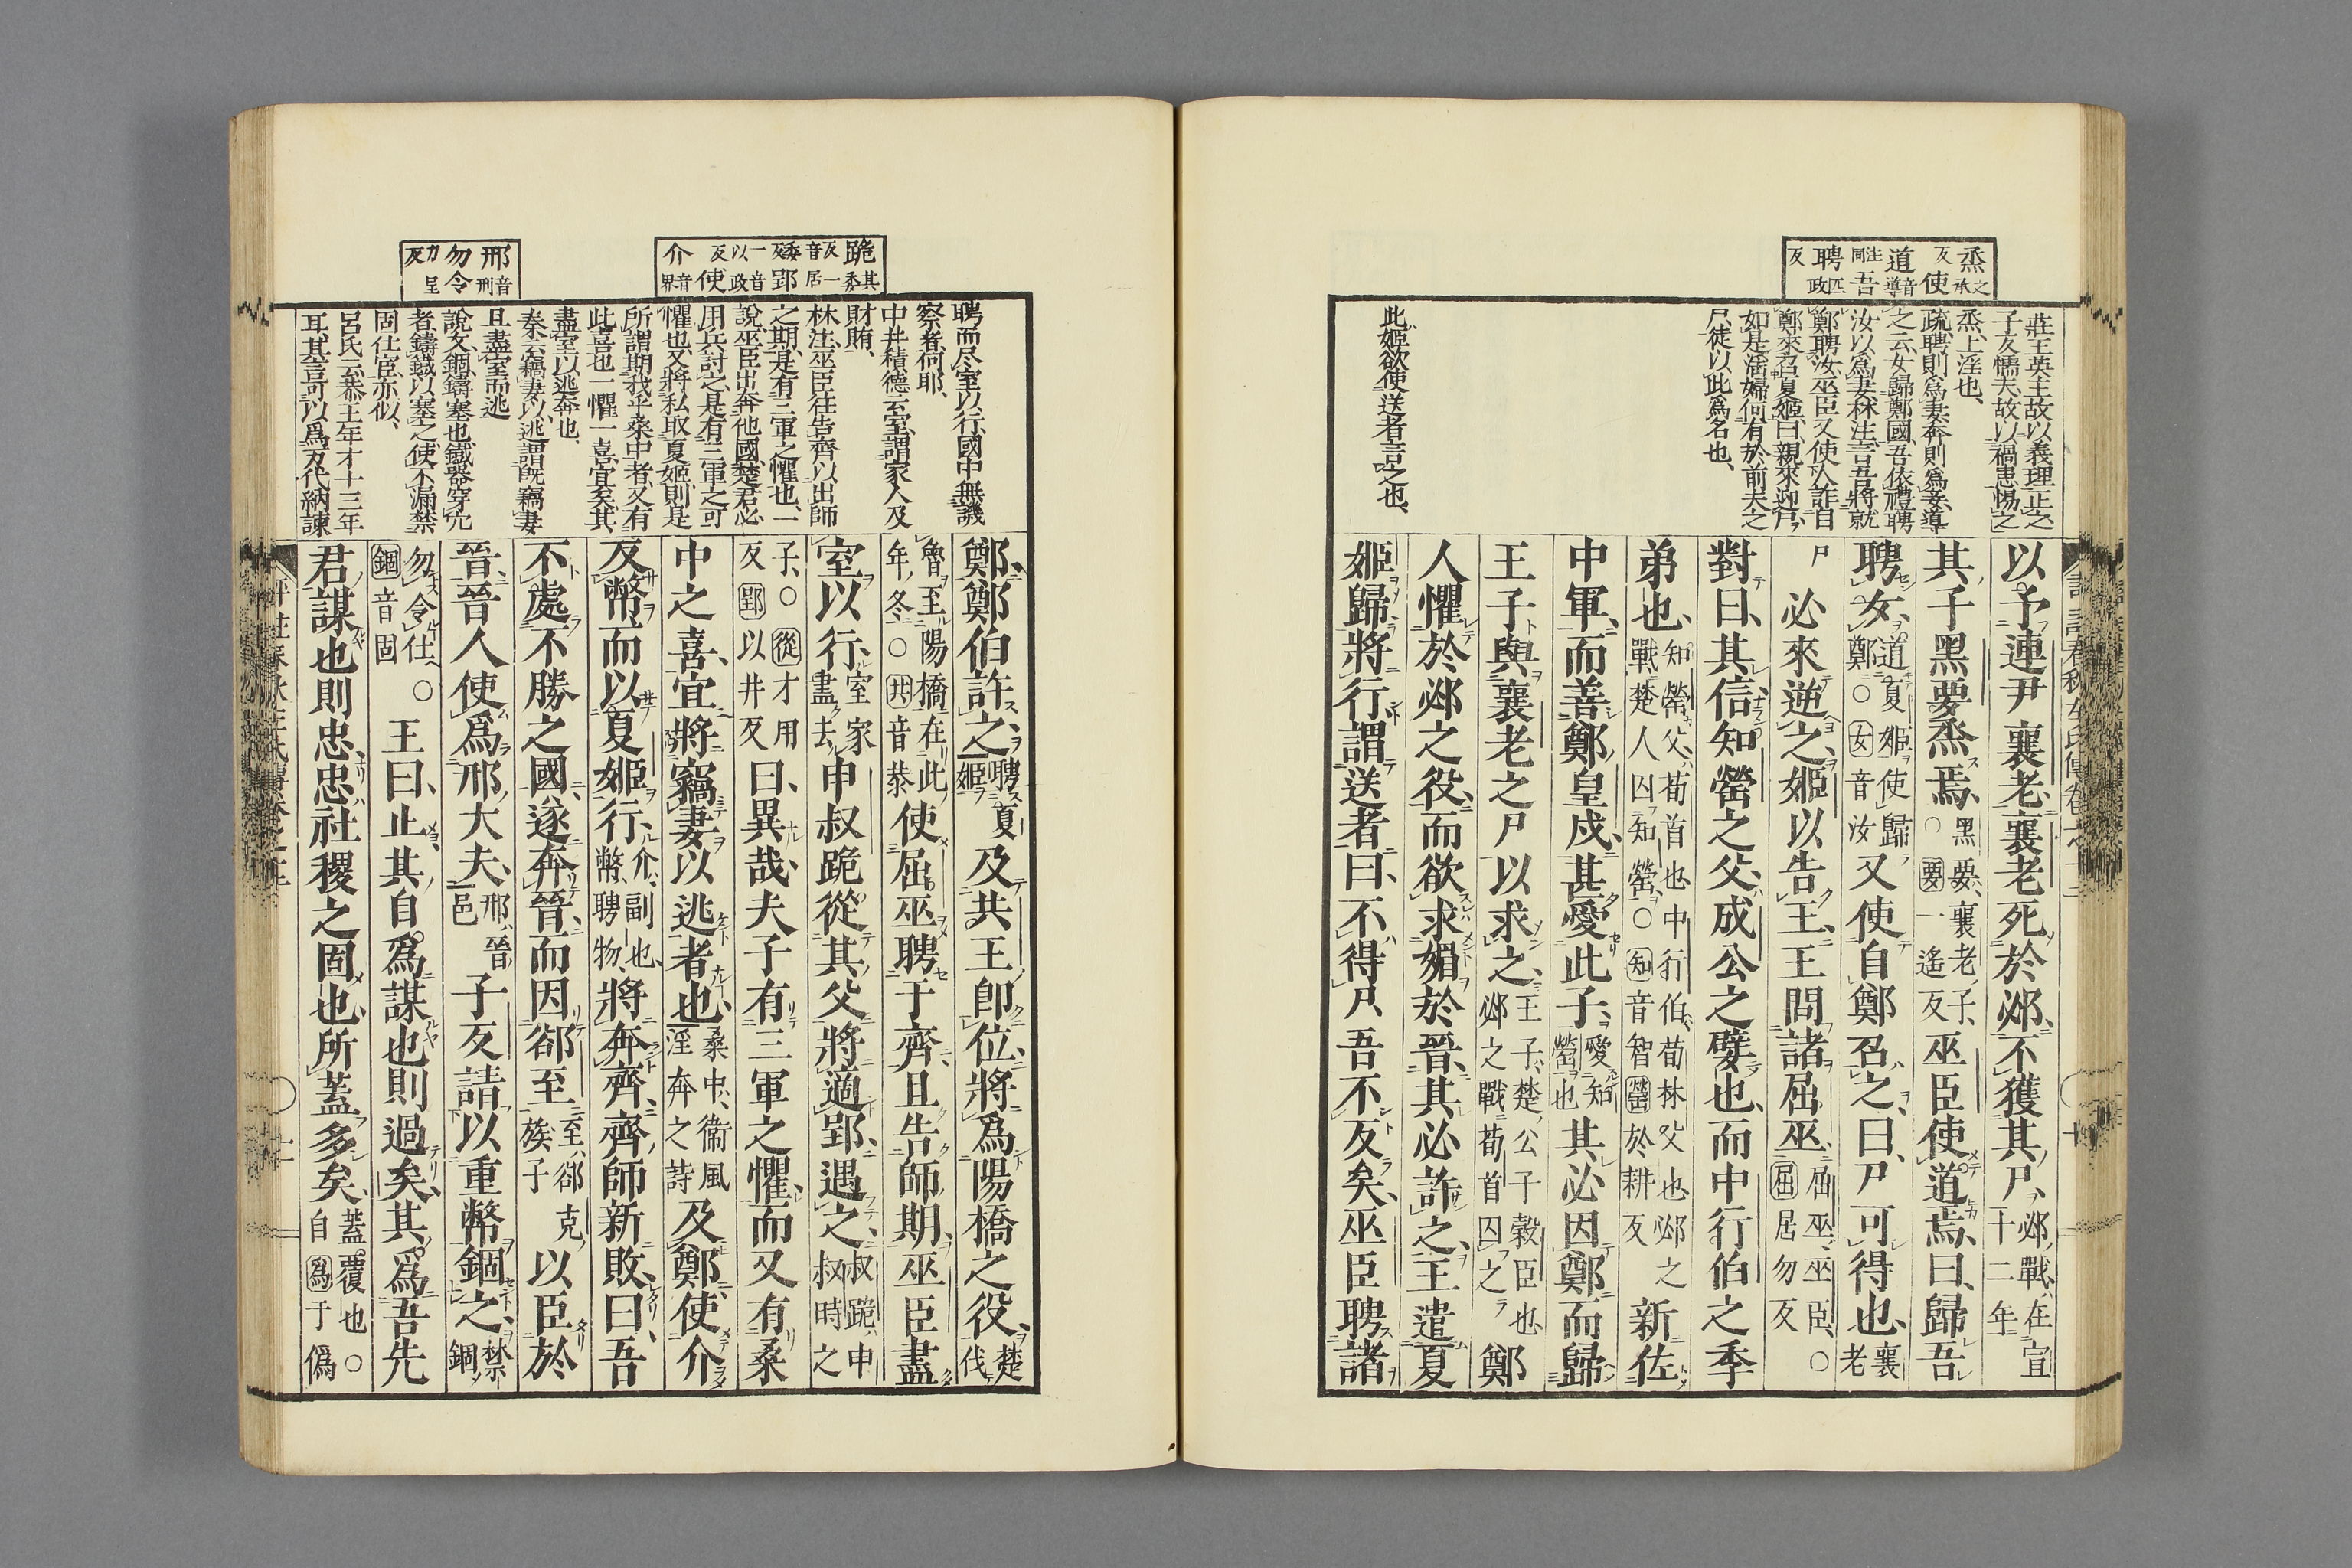 烝之承反使道音導注同吾聘匹政反
莊王英主故以義理正之
子反懦夫、故以禍患惕之
烝、上淫也、
疏、聘則爲妻、奔則爲妾、導
之云、女歸鄭國、吾依禮聘
汝以爲妻、林注、言吾將就
鄭聘汝、巫臣又使人詐自
鄭來召夏姬曰、親來迎尸、
如是淫婦、何有於前夫之
尸、徒以此爲名也、
此姬欲使送者言之也、
以予連尹襄老、襄老死於邲、不獲其尸、邲戰、在宣十二年
其子黑要烝焉、黑要、襄老子、○要一遙反巫臣使道焉、曰、歸吾
聘女、道夏姬使歸鄭○女音汝又使自鄭召之、曰、尸可得也、襄老
尸必來逆之、姬以告王、王問諸屈巫、屈巫、巫臣、○屈居勿反
對曰、其信、知罃之父、成公之嬖也、而中行伯之季
弟也、知罃父、荀首也中行伯、荀林父也邲之戰楚人囚知罃、○知音智罃於耕反新佐
中軍、而善鄭皇戌、甚愛此子、愛知罃也其必因鄭而歸
王子與襄老之尸以求之、王子、楚公子穀臣也邲之戰荀首囚之鄭
人懼於邲之役、而欲求媚於晉、其必許之、王遣夏
姬歸、將行、謂送者曰、不得尸、吾不反矣、巫臣聘諸
跪其委反一音居委反郢以政反一音使介音界
邢音刑勿令力呈反
聘而尽室以行、國中無譏
察者、何耶、
中井積德云、室、謂家人及
財賄、
林注、巫臣往告齊以出師
之期、是有三軍之懼也、一
說、巫臣出奔他國、楚君必
用兵討之、是有三軍之可
懼也、又將私取夏姬、則是
所謂期我乎桑中者、又有
此喜也、一懼一喜、宜矣其
盡室以逃奔也、
秦云竊妻以逃、謂既竊妻
且盡室而逃
說文、錮、鑄塞也、鐵器穿穴
者、鑄鐵以塞之、使不漏、禁
固仕宦、亦似、
呂氏云、恭王年才十三年
耳、其言可以爲万代納諫
鄭、鄭伯許之、聘夏姬及共王卽位、將爲陽橋之役、楚伐
魯至陽橋在此年冬、○共音恭使屈巫聘于齊、且告師期、巫臣盡
室以行、室家盡去申叔跪從其父、將適郢、遇之、叔跪、申叔時之
子、○從才用反郢以井反曰、異哉、夫子有三軍之懼、而又有桑
中之喜、宜將竊妻以逃者也、桑中、衞風淫奔之詩及鄭、使介
反幣、而以夏姬行、介、副也、幣、聘物、將奔齊、齊師新敗、曰、吾
不處不勝之國、遂奔晉、而因郤至、至、郤克族子以臣於
晉、晉人使爲邢大夫、邢、晉邑子反請以重幣錮之、禁錮
勿令仕、○錮音固王曰、止、其自爲謀也則過矣、其爲吾先
君謀也則忠、忠社稷之固也、所蓋多矣、蓋、覆也○自爲于僞